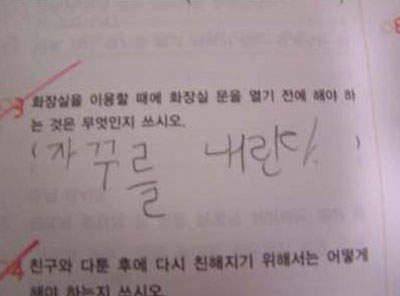 3 화장실을 이용할 때에 화장실 문을 열기 전에 해야 하
는 것은 무엇인지 쓰시오.
( 자꾸를 내린다. )
4 친구와 다툰 후에 다시 친해지기 위해서는 어떻게
해야 하는지 쓰시오